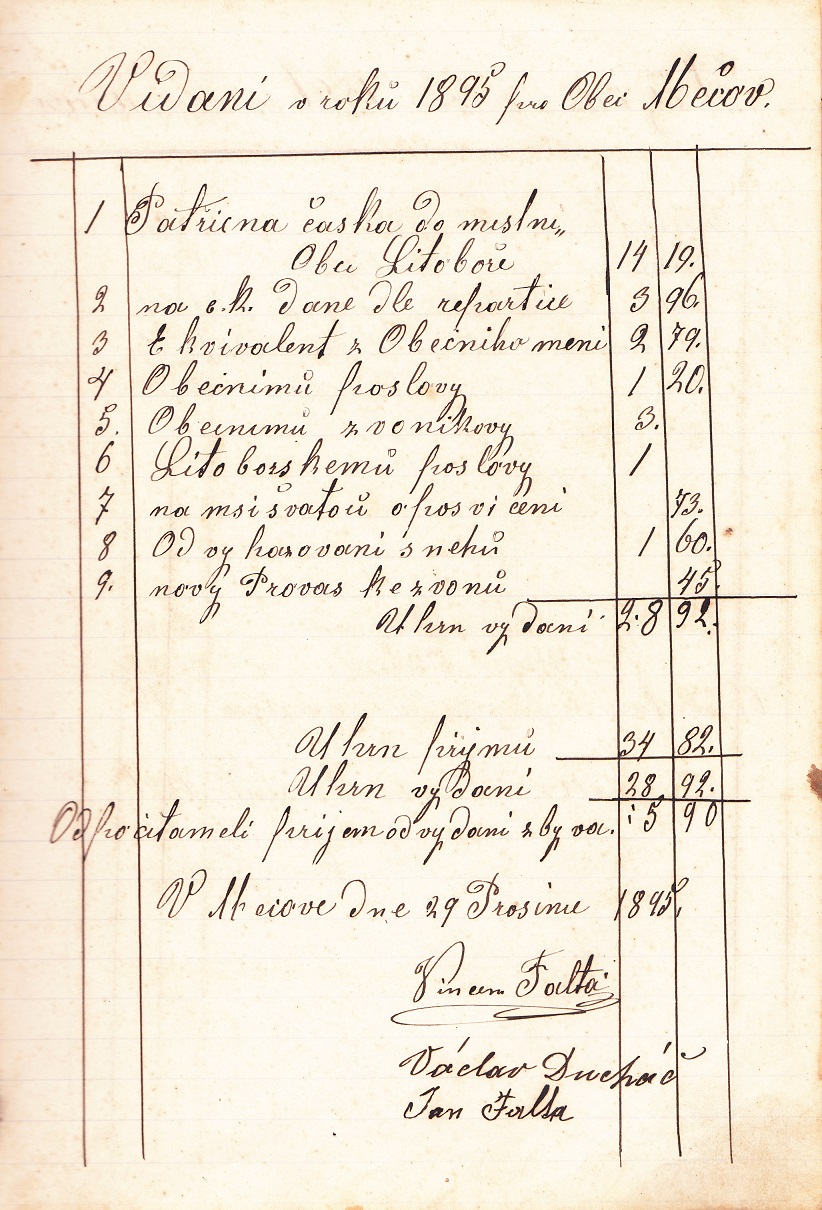 Vidani v roků 1895 pro Obec Mečov.
1 Patřicna časka do mistni„
Obci Litoboře 14 19.
2 na c.k. dane dle repartice 3 96.
3 Ekvivalent z Obecniho meni 2 79.
4 Obecnimů poslovy 1 20.
5. Obecnimů zvonikovy 3.
6 Litoborskemů poslovy 1
7 na msi svatoů o posviceni 73.
8 Od vyhazovani snehů 1 60.
9. nový Provas ke zvonů 45.
Uhrn vydani 28 92.
Uhrn přijmů 34 82.
Uhrn vydani 28 92.
Odpočitameli prijem od vydani zbyva. 5 90
V Mecove dne 29 Prosince 1895.
Vincenc Falta
Václav Ducháč
Jan Falta